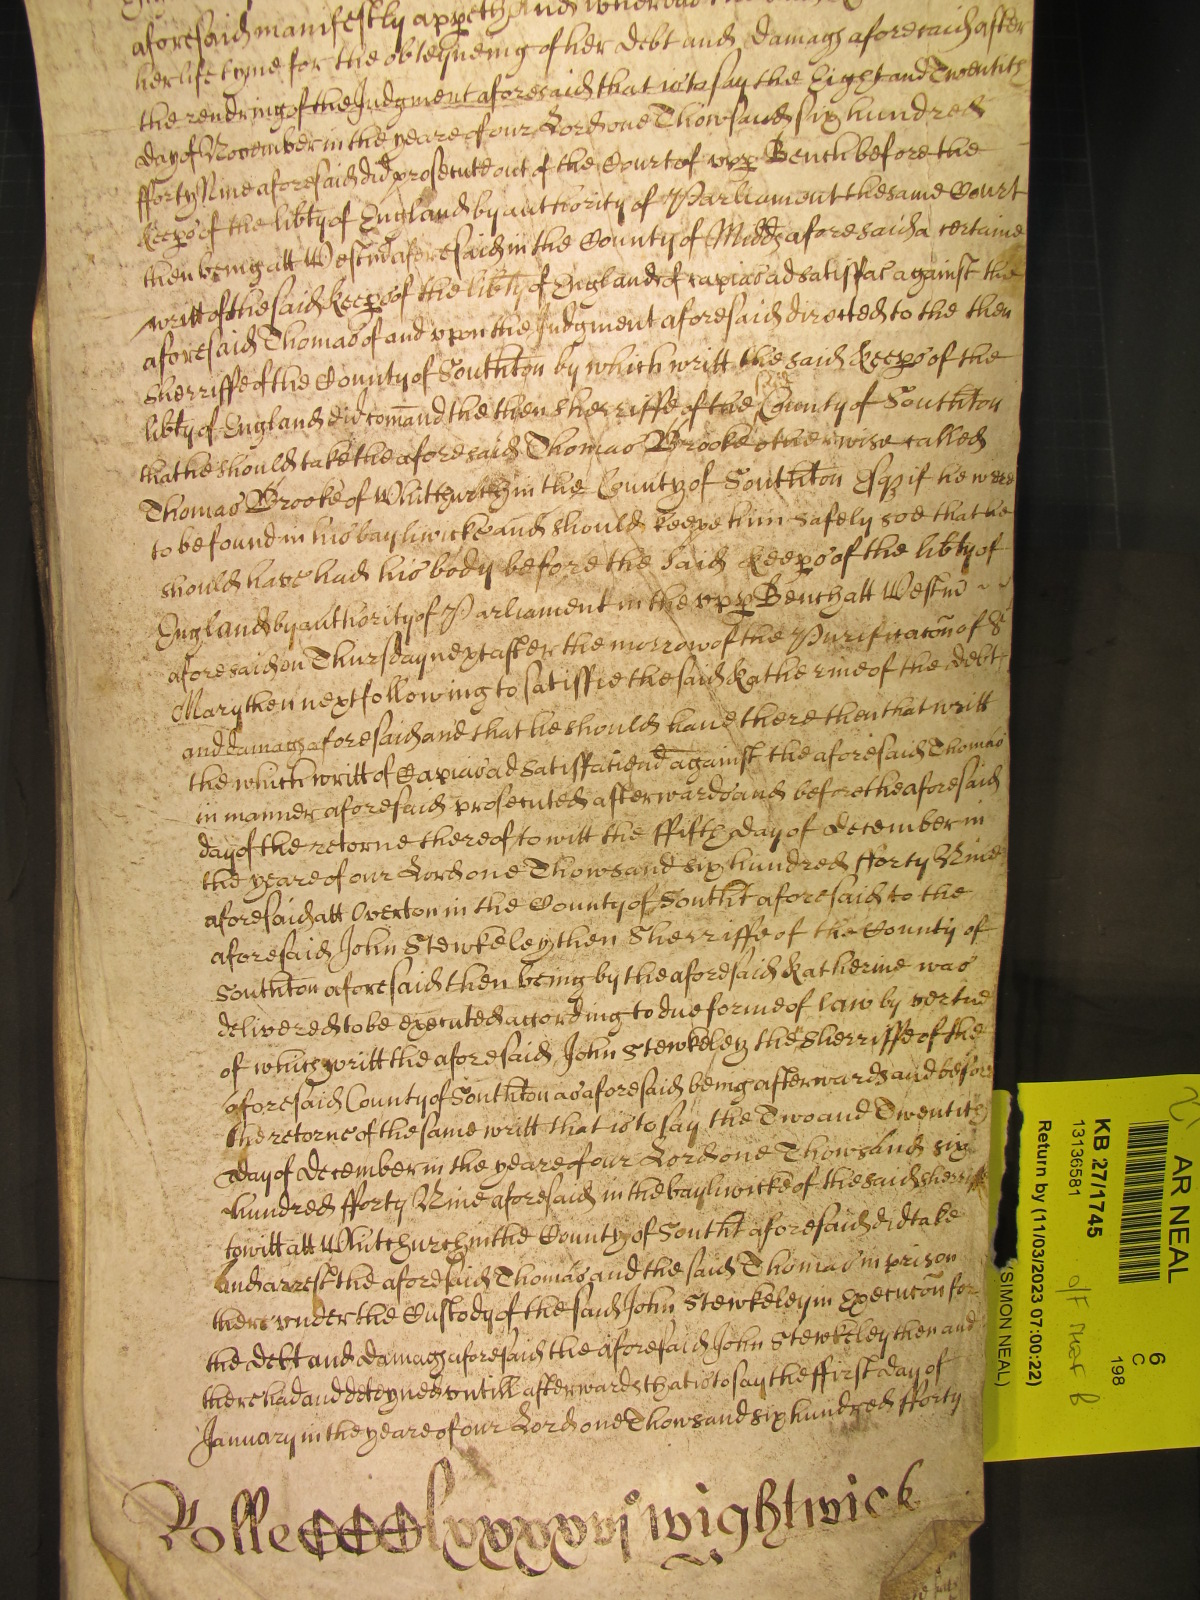 aforesaid manifestly appeth And
her life tyme for the obteyneing of her Debt and Damag aforesaid after
the rendring of the Judgment aforesaid that is to say the Eight and Twentith
day of November in the yeare of our Lord one Thowsand six hundred
fforty Nine aforesaid did prosecute out of the Court of vpp Bench before the
Keeps of the libty of England by authority of Parliament the same Court
then being att Westm aforesaid in the County of Midds aforesaid a certaine
writt of the said Keeps of the libty of England of capias ad satisfac against the
aforesaid Thomas of and vpon the Judgment aforesaid directed to the then
Sherriffe of the County of Southton by which writt the said Keeps of the
libty of England did comand the then Sherriffe of the County of Southton
that he should take the aforesaid Thomas Brooke otherwise called
Thomas Brooke of Whitchurch in the County of Southton Esq if he were
to be found in his bayliwicke and should keepe him safely soe that he
should have had his body before the said Keeps of the libty of
England by authority of Parliament in the vpp Bench att Westm
aforesaid on Thursday next after the morrow of the Purificacon of St
Mary then next following to satisfie the said Katherine of the debt
and damag aforesaid and that he should haue there then that writt
the which writt of Capias ad satisfaciend against the aforesaid Thomas
in manner aforesaid prosecuted afterwards and before the aforesaid
day of the retorne thereof to witt the ffifth day of December in
the yeare of our Lord one Thowsand six hundred fforty Nine
aforesaid att Overton in the County of Southt aforesaid to the
aforesaid John Stewkeley then Sherriffe of the County of
Southton aforesaid then being by the aforesaid Katherine was
delivered to be executed according to due forme of law by vertue
of which writt the aforesaid John Stewkeley the Sherriffe of the
aforesaid County of Southton as aforesaid being afterwards and before
the retorne of the same writt that is to say the Two and Twentith
day of December in the yeare of our Lord one Thowsand six
hundred fforty Nine aforesaid in the bayliwicke of the said Sherriffe
to witt att Whitchurch in the County of Southt aforesaid did take
and arrest the aforesaid Thomas and the said Thomas in prison
there vnder the Custody of the said John Stewkeley in Execucon for
the debt and damag aforesaid the aforesaid John Stewkeley then and
there had and deteyned vntill afterwards that is to say the ffirst day of
January in the yeare of our Lord one Thowsand six hundred fforty
Rolle CCClxxxxvj Wightwick
AR NEAL
KB 27/1745
13136581
Return by (11/03/2023 07:00:22)
(SIMON NEAL)
6
C
198